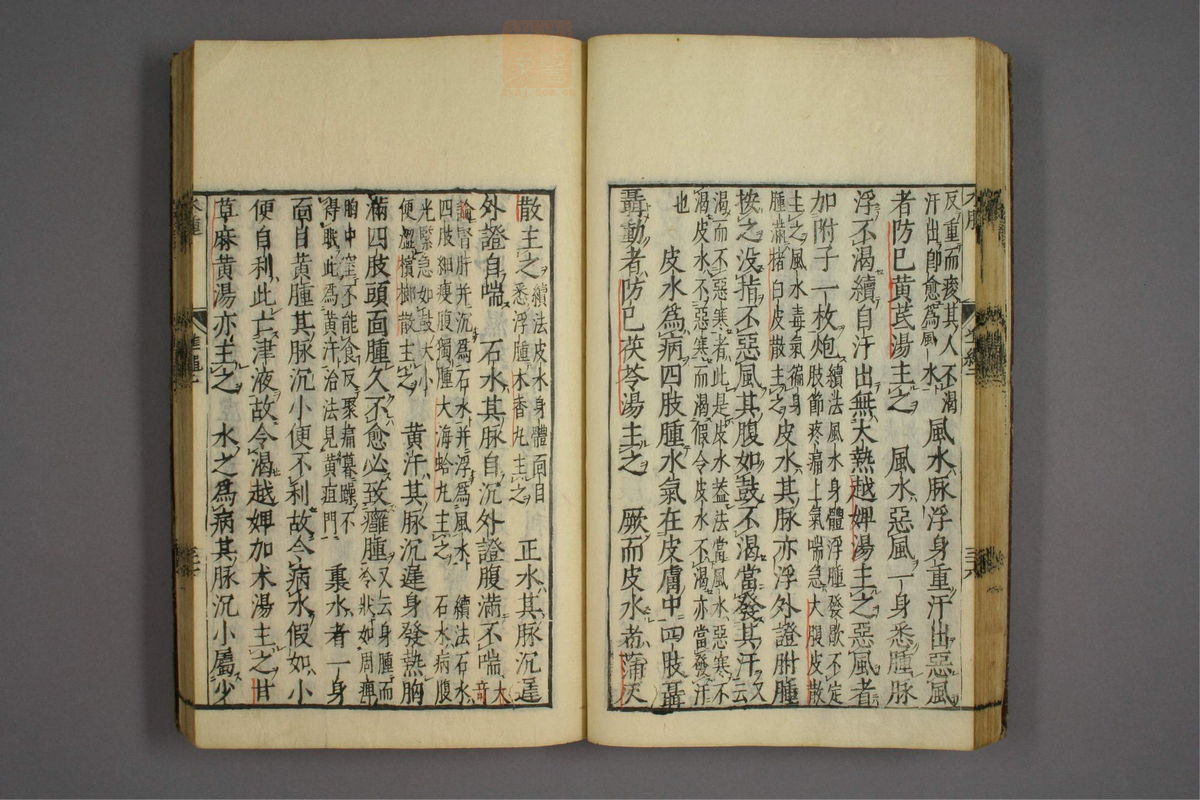 反重而痠其人不渴
汗出卽愈爲風水
風水脉浮身重汗出惡風
者防已黄芪湯主之　風水惡風一身悉腫脉
浮不渴續自汗出無大熱越婢湯主之惡風者
加附子一枚炮
續法風水身體浮腫發歇不定
肢節疼痛上氣喘急大腹皮散
主之風水毒氣徧身
腫滿猪白皮散主之
皮水其脉亦浮外證胕腫
按之没指不惡風其腹如鼓不渴當發其汗
又
云
渴而不惡寒者此是皮水蓋法當風水惡寒不
渴皮水不惡寒而渴假令皮水不渴亦當發汗
也
皮水爲病四肢腫水氣在皮膚中四肢聶
聶動者防已茯苓湯主之　厥而皮水者蒲灰
散主之
續法皮水身體面目
悉浮腫木香丸主之
正水其脉沉遲
外證自喘　石水其脉自沉外證腹滿不喘
大
奇
論腎肝并沉爲石水并浮爲風水　續法石水
四肢細瘦腹獨腫大海蛤丸主之　石水病腹
光緊急如鼓大小
便澀檳榔散主之
黄汗其脉沉遲身發熱胸
滿四肢頭面腫久不愈必致癰腫
又云身腫而
冷狀如周痺
胸中窒不能食反聚痛暮躁不
得眠此爲黄汗治法見黄疸門
裏水者一身
面目黄腫其脉沉小便不利故令病水假如小
便自利此亡津液故令渴越婢加木湯主之甘
草麻黄湯亦主之　水之爲病其脉沉小屬少